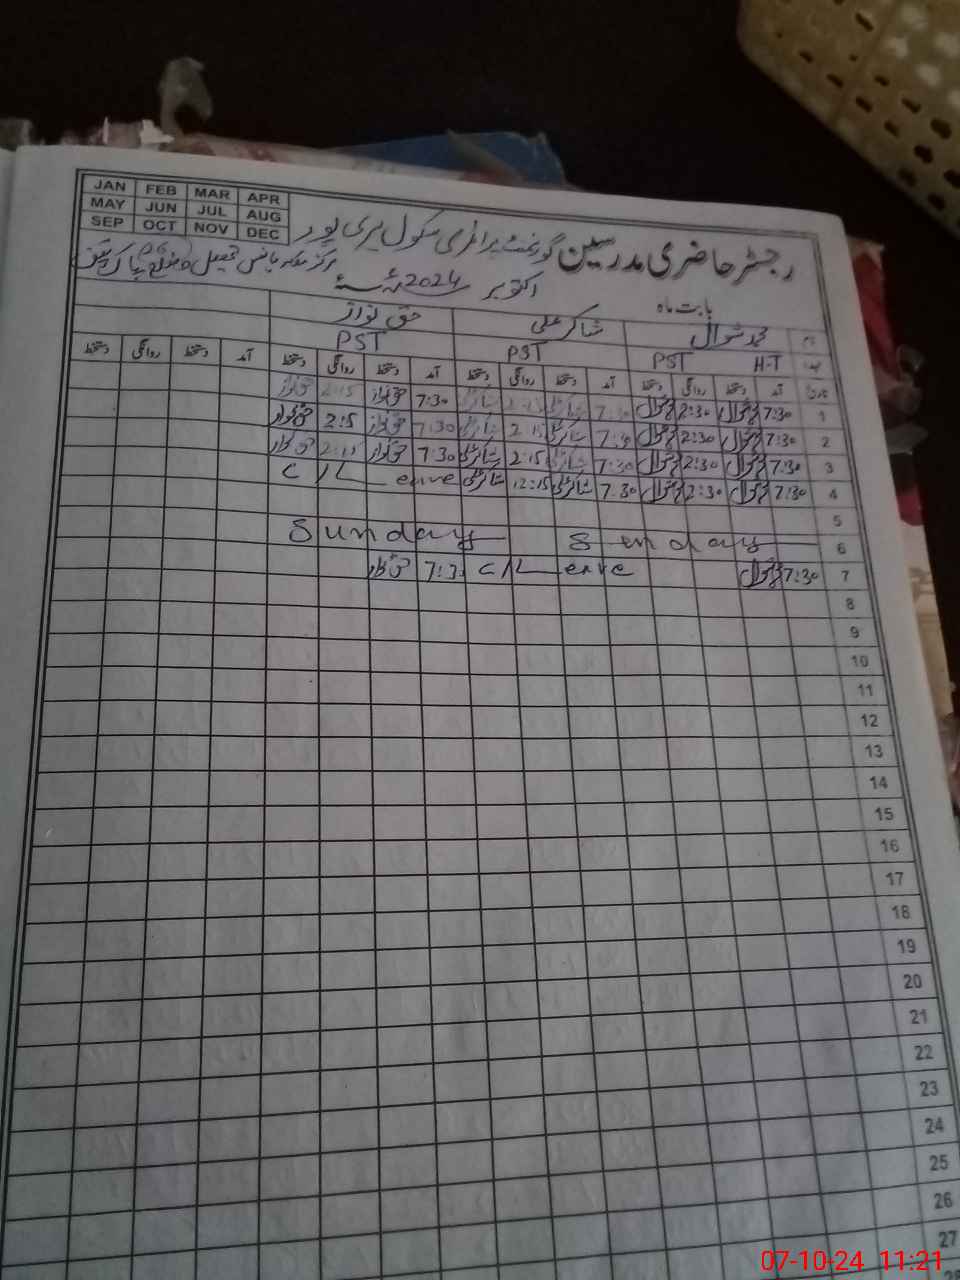 JAN FEB MAR APR
MAY JUN JUL AUG
SEP OCT NOV DEC
رجسٹر حاضری مدرسین گورنمنٹ پرائمری سکول پیری پور
بابت ماہ اکتوبر 2024ء
نام محمد شوال شاکر علی حق نواز
عہدہ H-T PST PST PST
تاریخ آمد دستخط روانگی دستخط آمد دستخط روانگی دستخط آمد دستخط روانگی دستخط آمد دستخط روانگی دستخط
1 7:30 شوال 2:30 شوال 7:30 شاکر علی 2:15 شاکر علی 7:30 حق نواز 2:15 حق نواز
2 7:30 شوال 2:30 شوال 7:30 شاکر علی 2:15 شاکر علی 7:30 حق نواز 2:15 حق نواز
3 7:30 شوال 2:30 شوال 7:30 شاکر علی 2:15 شاکر علی 7:30 حق نواز 2:15 حق نواز
4 7:30 شوال 2:30 شوال 7:30 شاکر علی 12:15 شاکر علی C/L eave
5
6 Sunday Sunday
7 7:30 شوال C/L eave 7:30 حق نواز
8
9
10
11
12
13
14
15
16
17
18
19
20
21
22
23
24
25
26
27
28
07-10-24 11:21